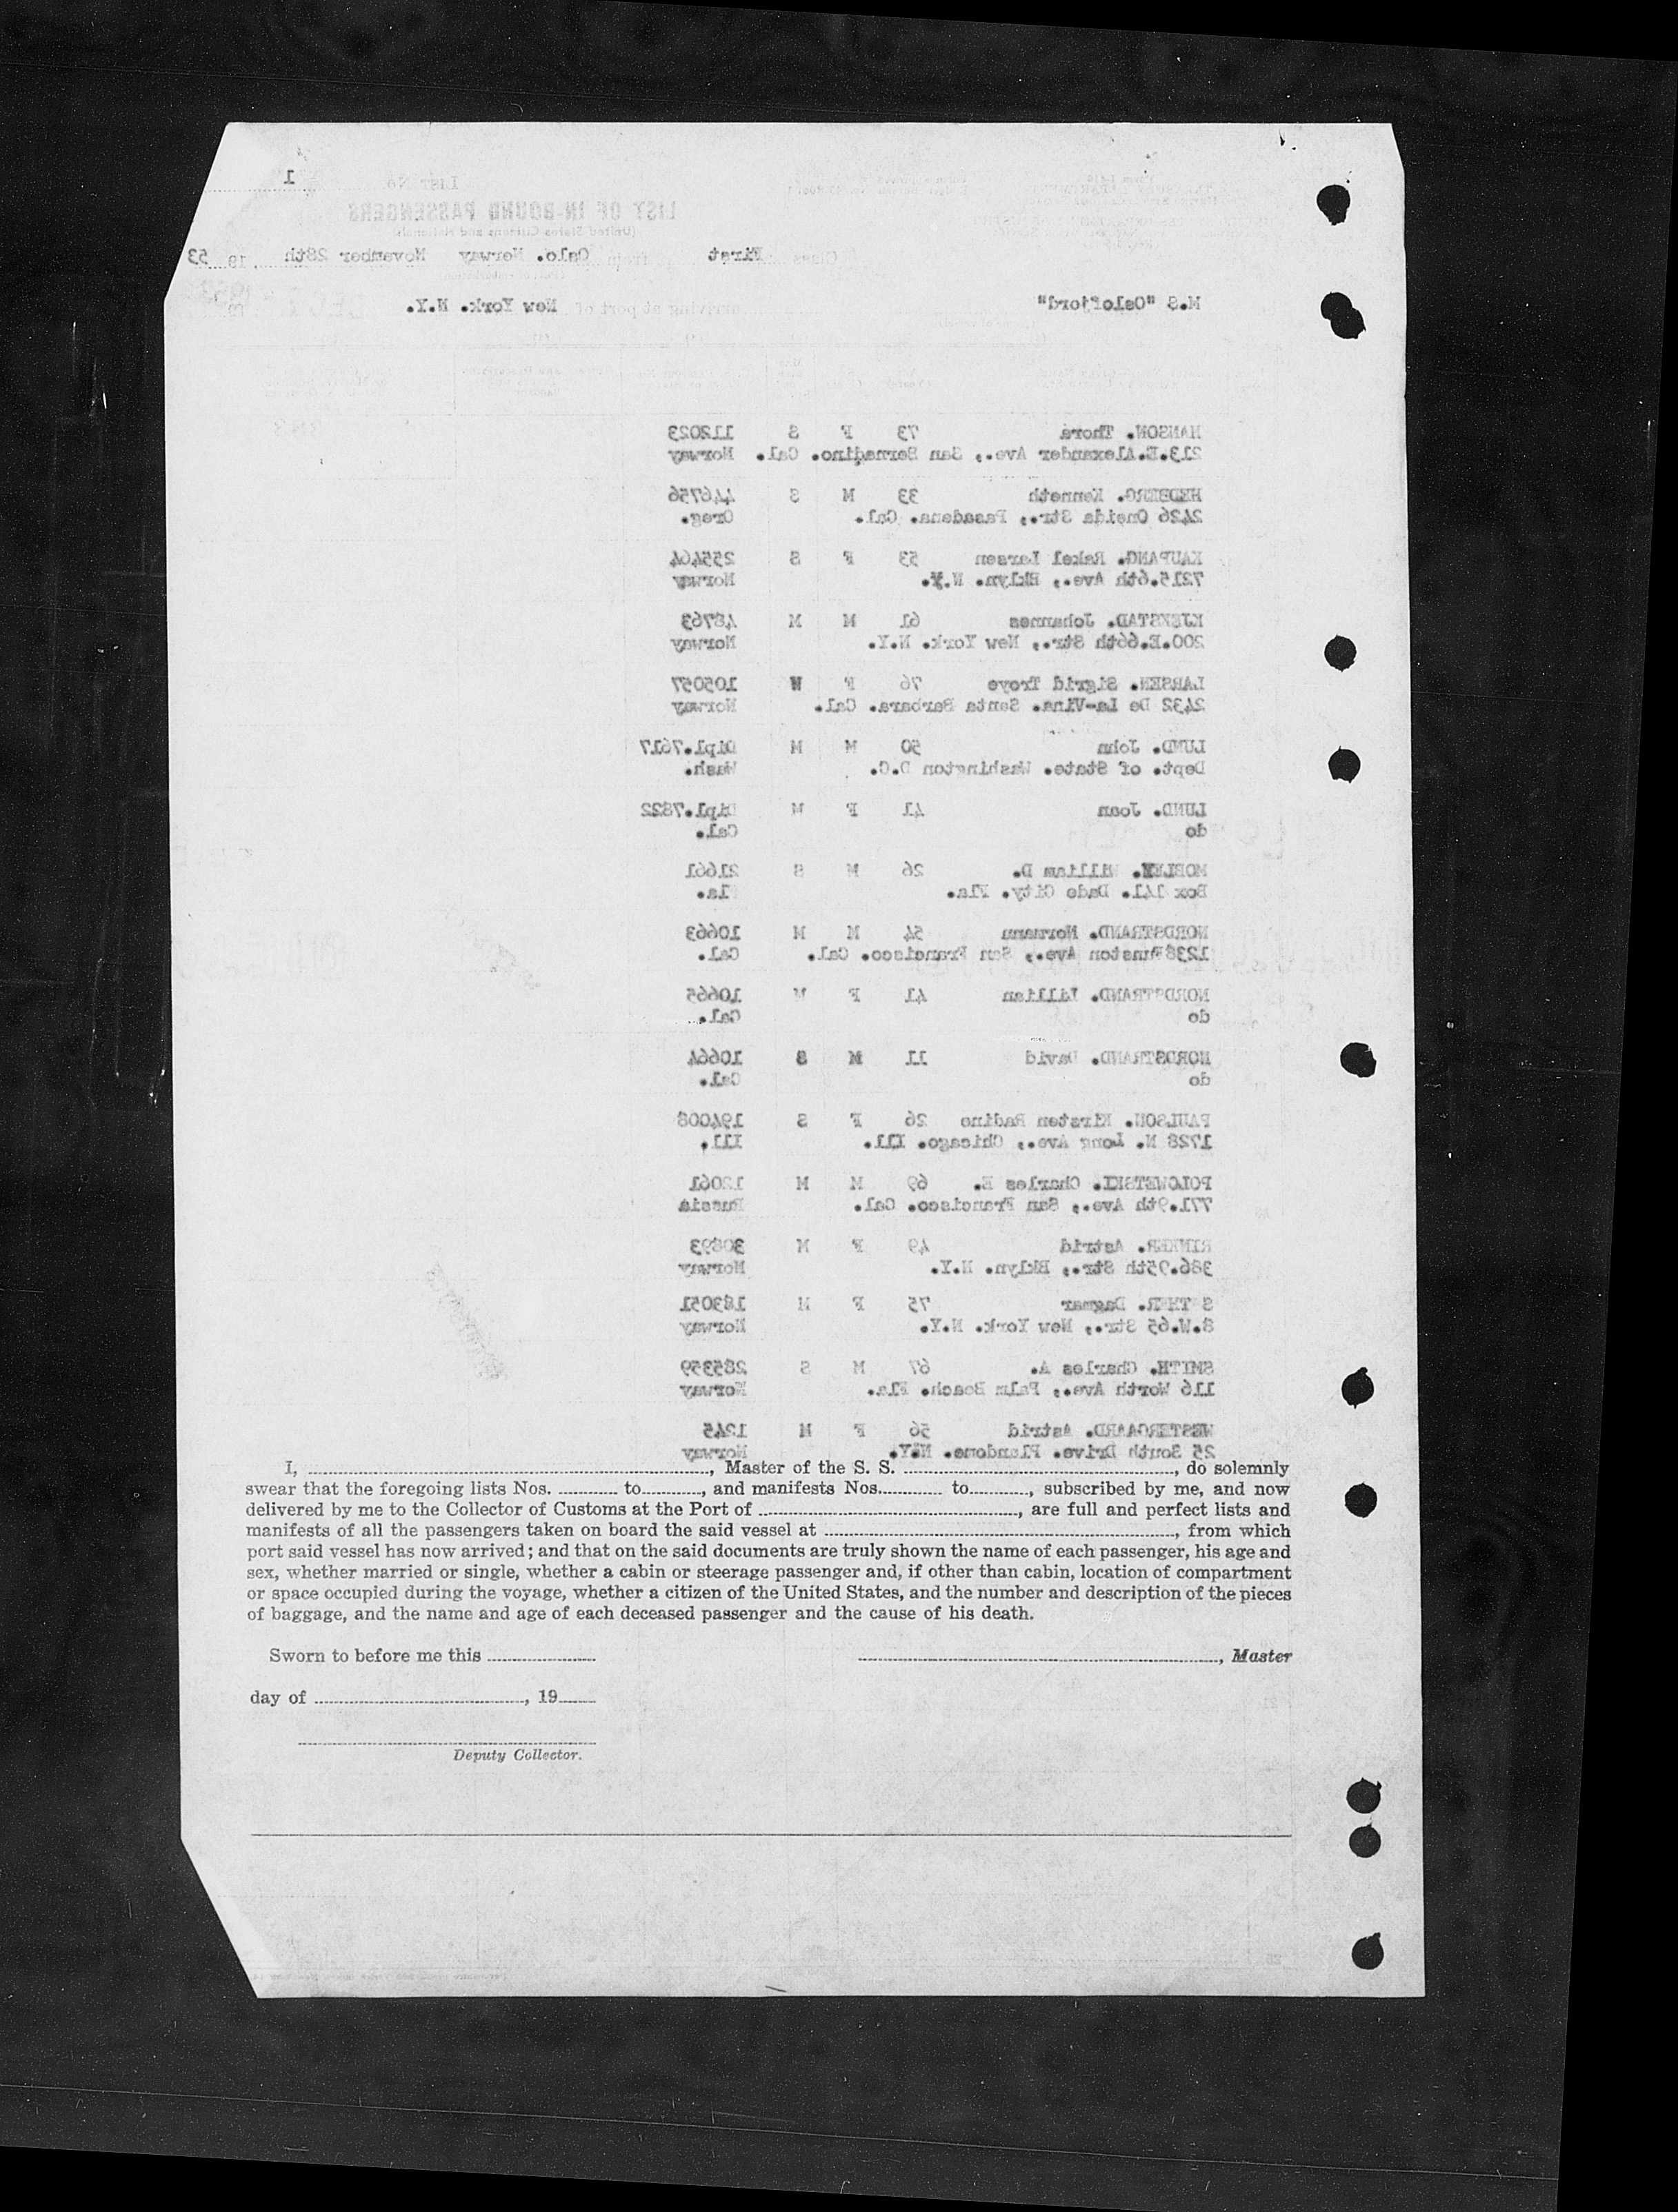 List No. 1
LIST OF IN-BOUND PASSENGERS
(United States Citizens and Nationals)
Class First from Oslo. Norway November 28th, 19 53
M.S "Oslofjord" arriving at port of New York. N.Y.
HANSON. Thora 73 F S 112023
213.E.Alexander Ave., San Bernadino. Cal. Norway
HEDBERG. Kenneth 33 M S 446756
2426 Oneida Str., Pasadena. Cal. Oreg.
KAUPANG. Rakel Larsen 53 F S 255464
7215.6th Ave., Bklyn. N.Y. Norway
KJEKSTAD. Johannes 61 M M 48763
200.E.66th Str., New York. N.Y. Norway
LARSEN. Sigrid Troye 76 F W 105057
2432 De La-Vina. Santa Barbara. Cal. Norway
LUND. John 50 M M Dipl.7617
Dept. of State. Washington D.C. Wash.
LUND. Joan 41 F M Dipl.7822
do Cal.
MOBLEY. William D. 26 M S 21661
Box 141. Dade City. Fla. Fla.
NORDSTRAND. Normann 54 M M 10663
1238 Funston Ave., San Francisco. Cal. Cal.
NORDSTRAND. Lillian 41 F M 10665
do Cal.
NORDSTRAND. David 11 M S 10664
do Cal.
PAULSON. Kirsten Radine 26 F S 194008
1728 N. Long Ave., Chicago. Ill. Ill.
POLOWETSKI. Charles E. 69 M M 12061
771.9th Ave., San Francisco. Cal. Russia
RINKER. Astrid 49 F M 30893
386.95th Str., Bklyn. N.Y. Norway
S THER. Dagmar 75 F M 183051
8.W.65 Str., New York. N.Y. Norway
SMITH. Charles A. 67 M S 285359
116 Worth Ave., Palm Beach. Fla. Norway
WESTERGAARD. Astrid 56 F M 1245
25 South Drive. Plandome. N.Y. Norway
I, ..., Master of the S. S. ..., do solemnly
swear that the foregoing lists Nos. ... to ..., and manifests Nos. ... to ..., subscribed by me, and now
delivered by me to the Collector of Customs at the Port of ..., are full and perfect lists and
manifests of all the passengers taken on board the said vessel at ..., from which
port said vessel has now arrived; and that on the said documents are truly shown the name of each passenger, his age and
sex, whether married or single, whether a cabin or steerage passenger and, if other than cabin, location of compartment
or space occupied during the voyage, whether a citizen of the United States, and the number and description of the pieces
of baggage, and the name and age of each deceased passenger and the cause of his death.
Sworn to before me this ... ..., Master
day of ..., 19...
Deputy Collector.